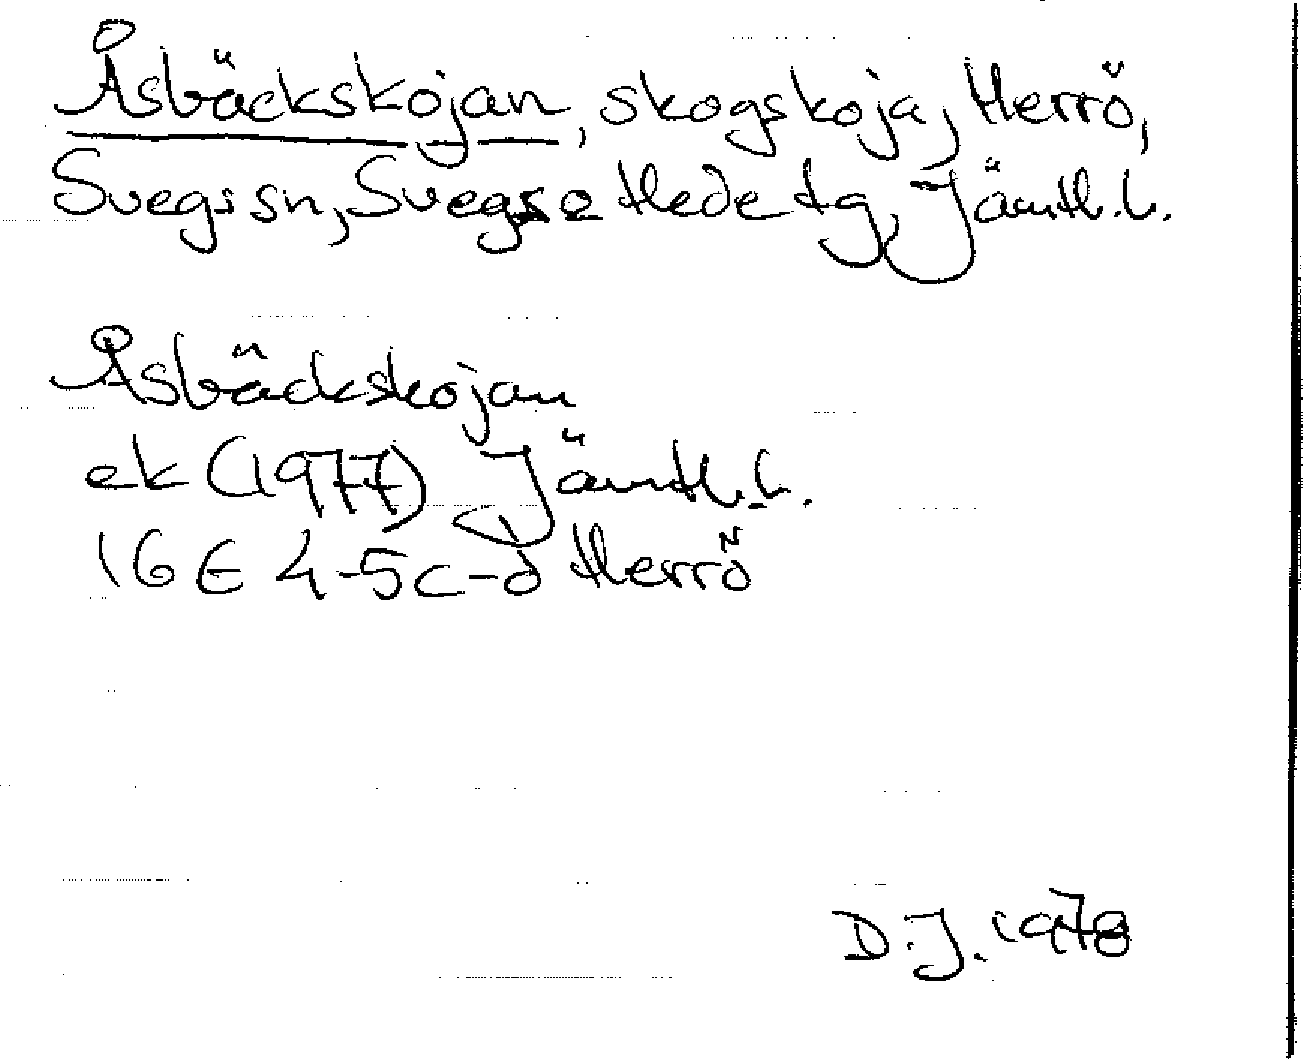 Åsbäckskojan, skogskoja, Herrö,
Svegs sn, Svegs o Hede tg, Jämtl. l.
Åsbäckskojan
ek (1977) Jämtl. l.
16 E 4-5c-d Herrö
D.J. 1978